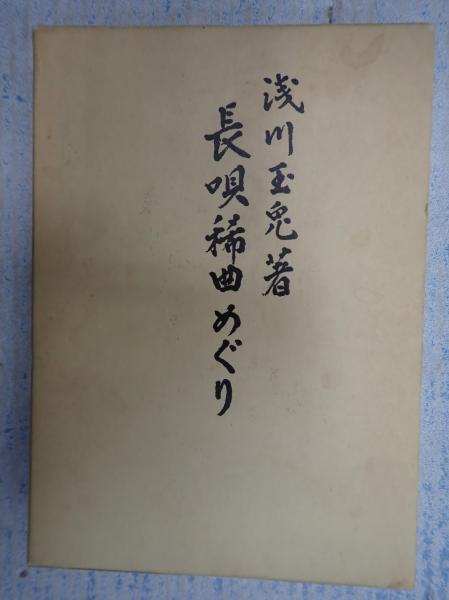 浅川玉兎著
長唄稀曲めぐり